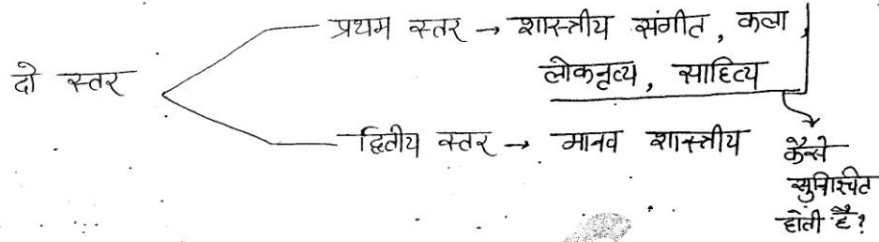 प्रथम स्तर → शास्त्रीय संगीत, कला,
लोकनृत्य, साहित्य
दो स्तर
द्वितीय स्तर → मानव शास्त्रीय
कैसे
सुनिश्चित
होती है?